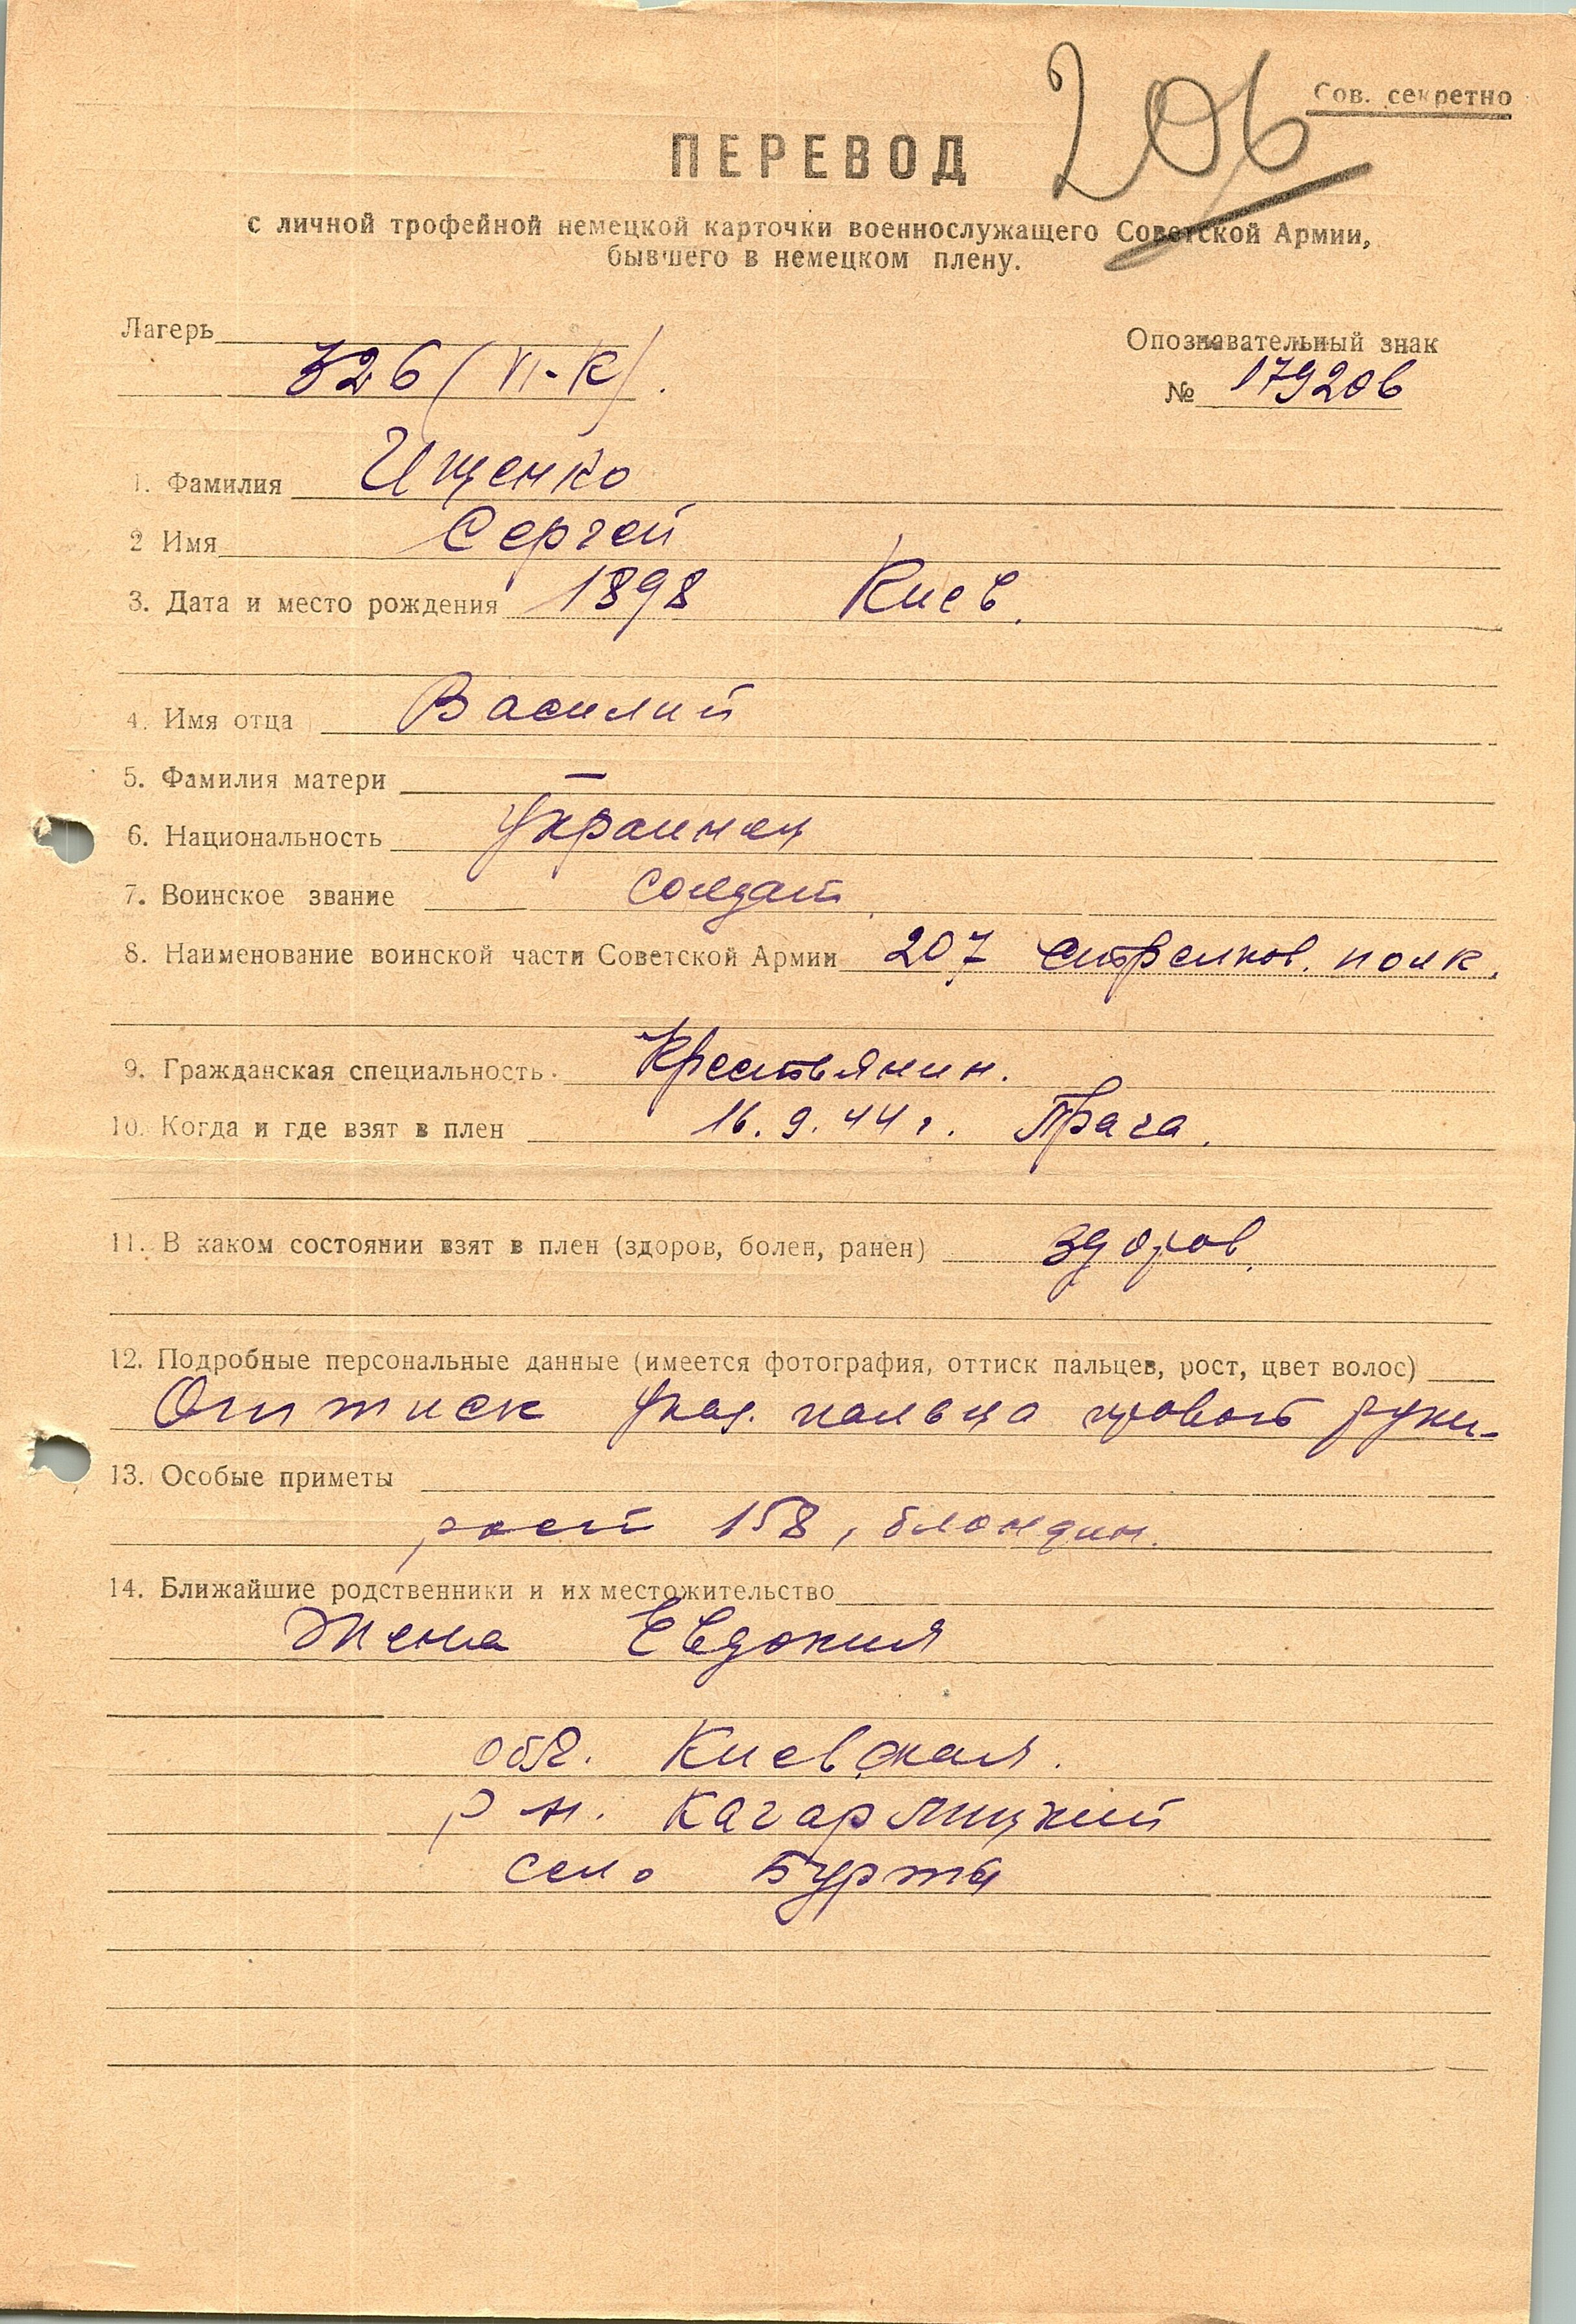 206
Сов. секретно
ПЕРЕВОД
с личной трофейной немецкой карточки военнослужащего Советской Армии,
бывшего в немецком плену.
Лагерь
326 (VI-К).
Опознавательный знак
№ 179206
1. Фамилия Ищенко
2 Имя Сергей
3. Дата и место рождения 1898 Киев.
4. Имя отца Василий
5. Фамилия матери —
6. Национальность Украинец
7. Воинское звание солдат.
8. Наименование воинской части Советской Армии 207 стрелков. полк.
9. Гражданская специальность Крестьянин.
10. Когда и где взят в плен 16.9.44 г. Прага.
11. В каком состоянии взят в плен (здоров, болен, ранен) здоров.
12. Подробные персональные данные (имеется фотография, оттиск пальцев, рост, цвет волос)
Оттиск указ. пальца правой руки.
13. Особые приметы
рост 158, блондин.
14. Ближайшие родственники и их местожительство
Жена Евдокия
обл. Киевская.
р-н. Кагарлицкий
село Бурты